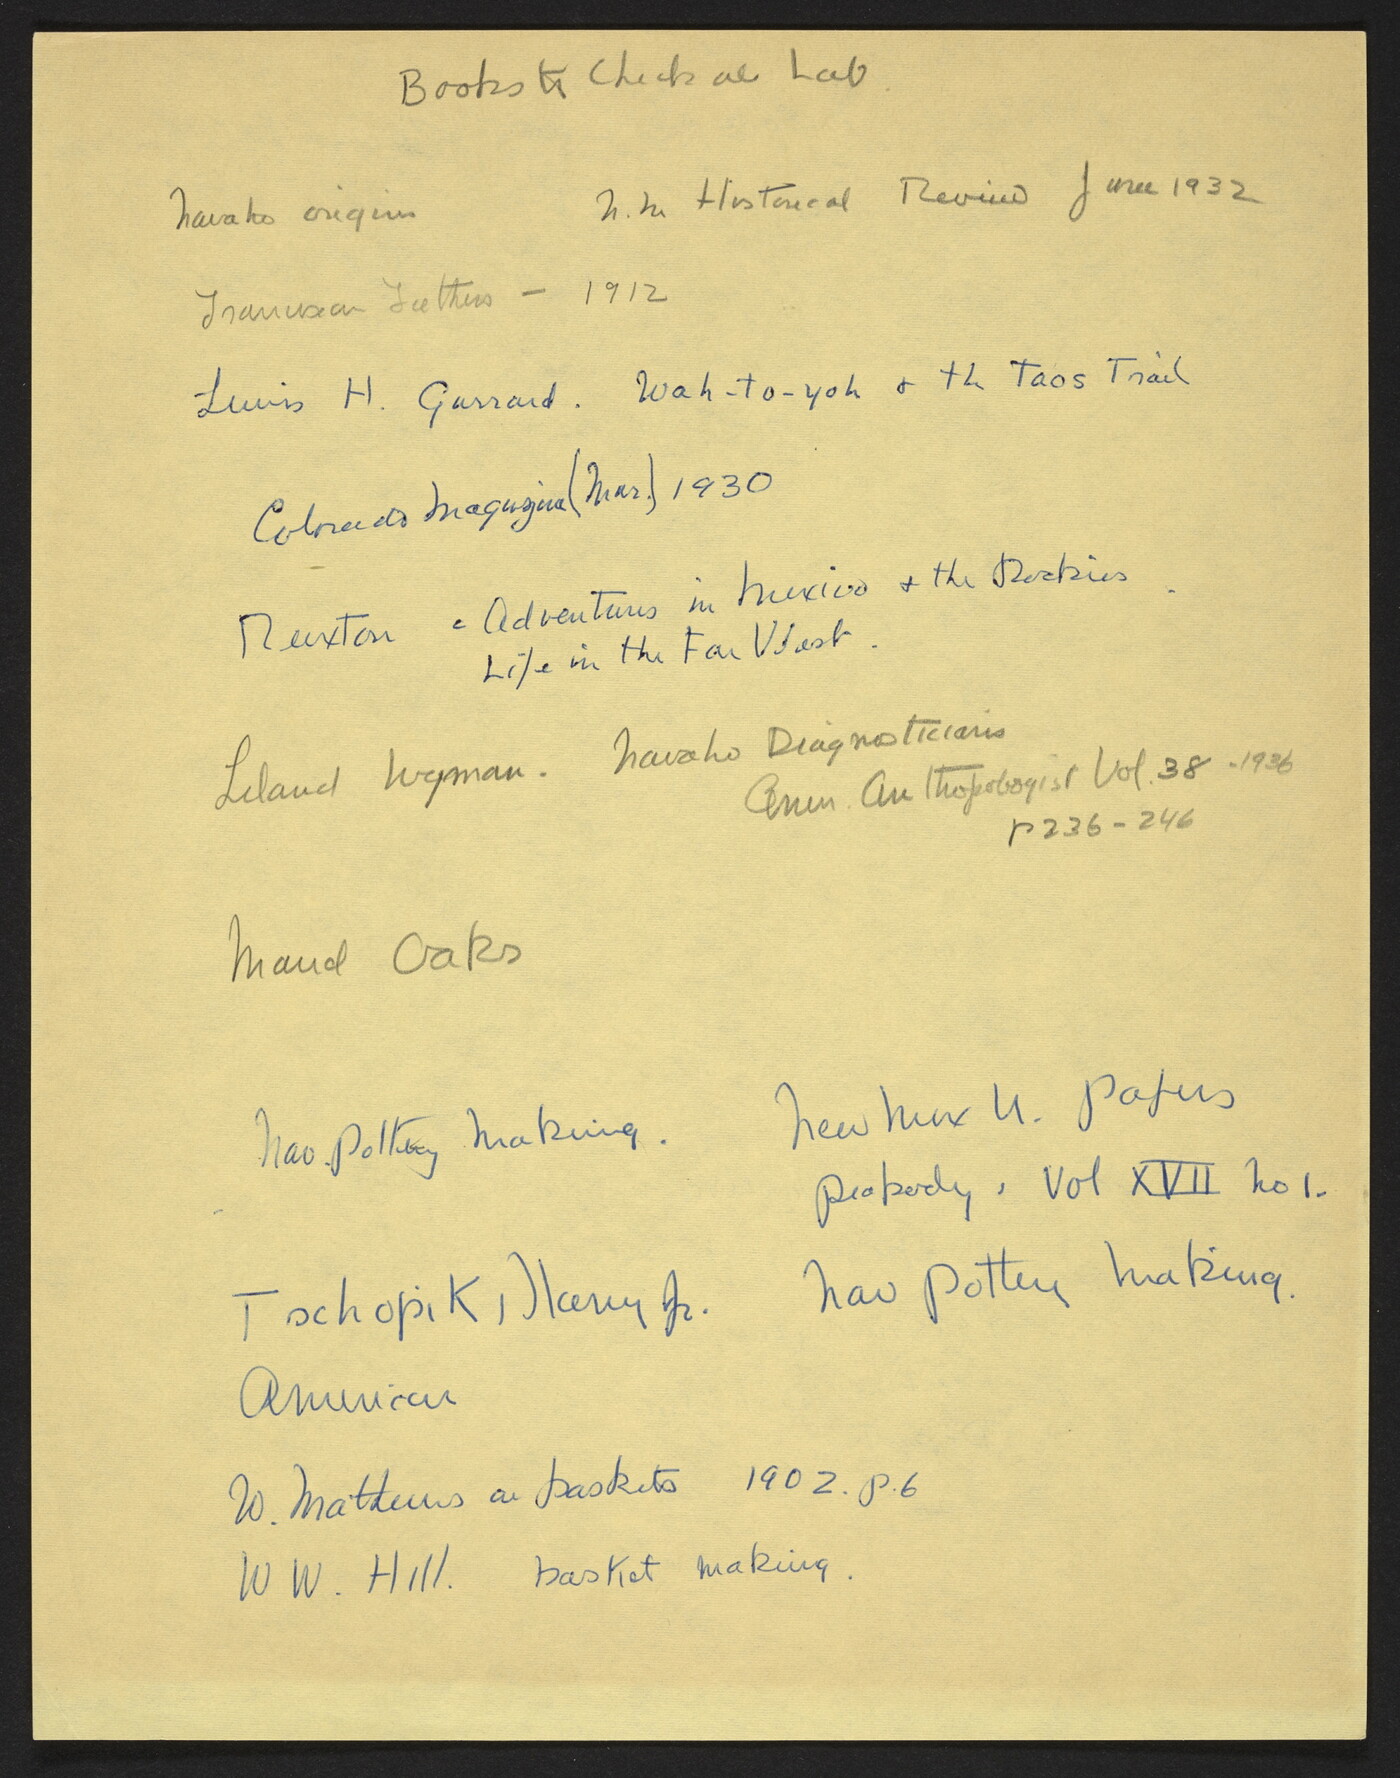 Books to Check at Lab
Navaho origins N.M Historical Review June 1932
Franciscan Fathers - 1912
Lewis H. Garrard. Wah-to-yah & the Taos Trail
Colorado Magazine (Mar.) 1930
Ruxton - Adventures in Mexico & the Rockies.
Life in the Far West.
Leland Wyman. Navaho Diagnosticians
Amer. Anthropologist Vol. 38 - 1936
p 236 - 246
Maud Oaks
Nav. Pottery Making. New Mex U. Papers
Peabody, Vol XVII No 1.
Tschopik, Harry Jr. Nav Pottery Making.
American
W. Mathews on baskets 1902. p. 6
W W. Hill. basket making.